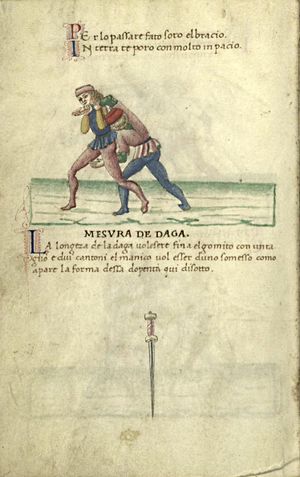 PEr lo passare fato soto el bracio.
IN terra te poro con molto inpacio.
MESVRA DE DAGA.
LA longeza de la daga vol esere fina el gomito con un ta
glio e dui cantoni el manico vol esser d'uno somesso como
apare la forma dessa dopenta qui disotto.